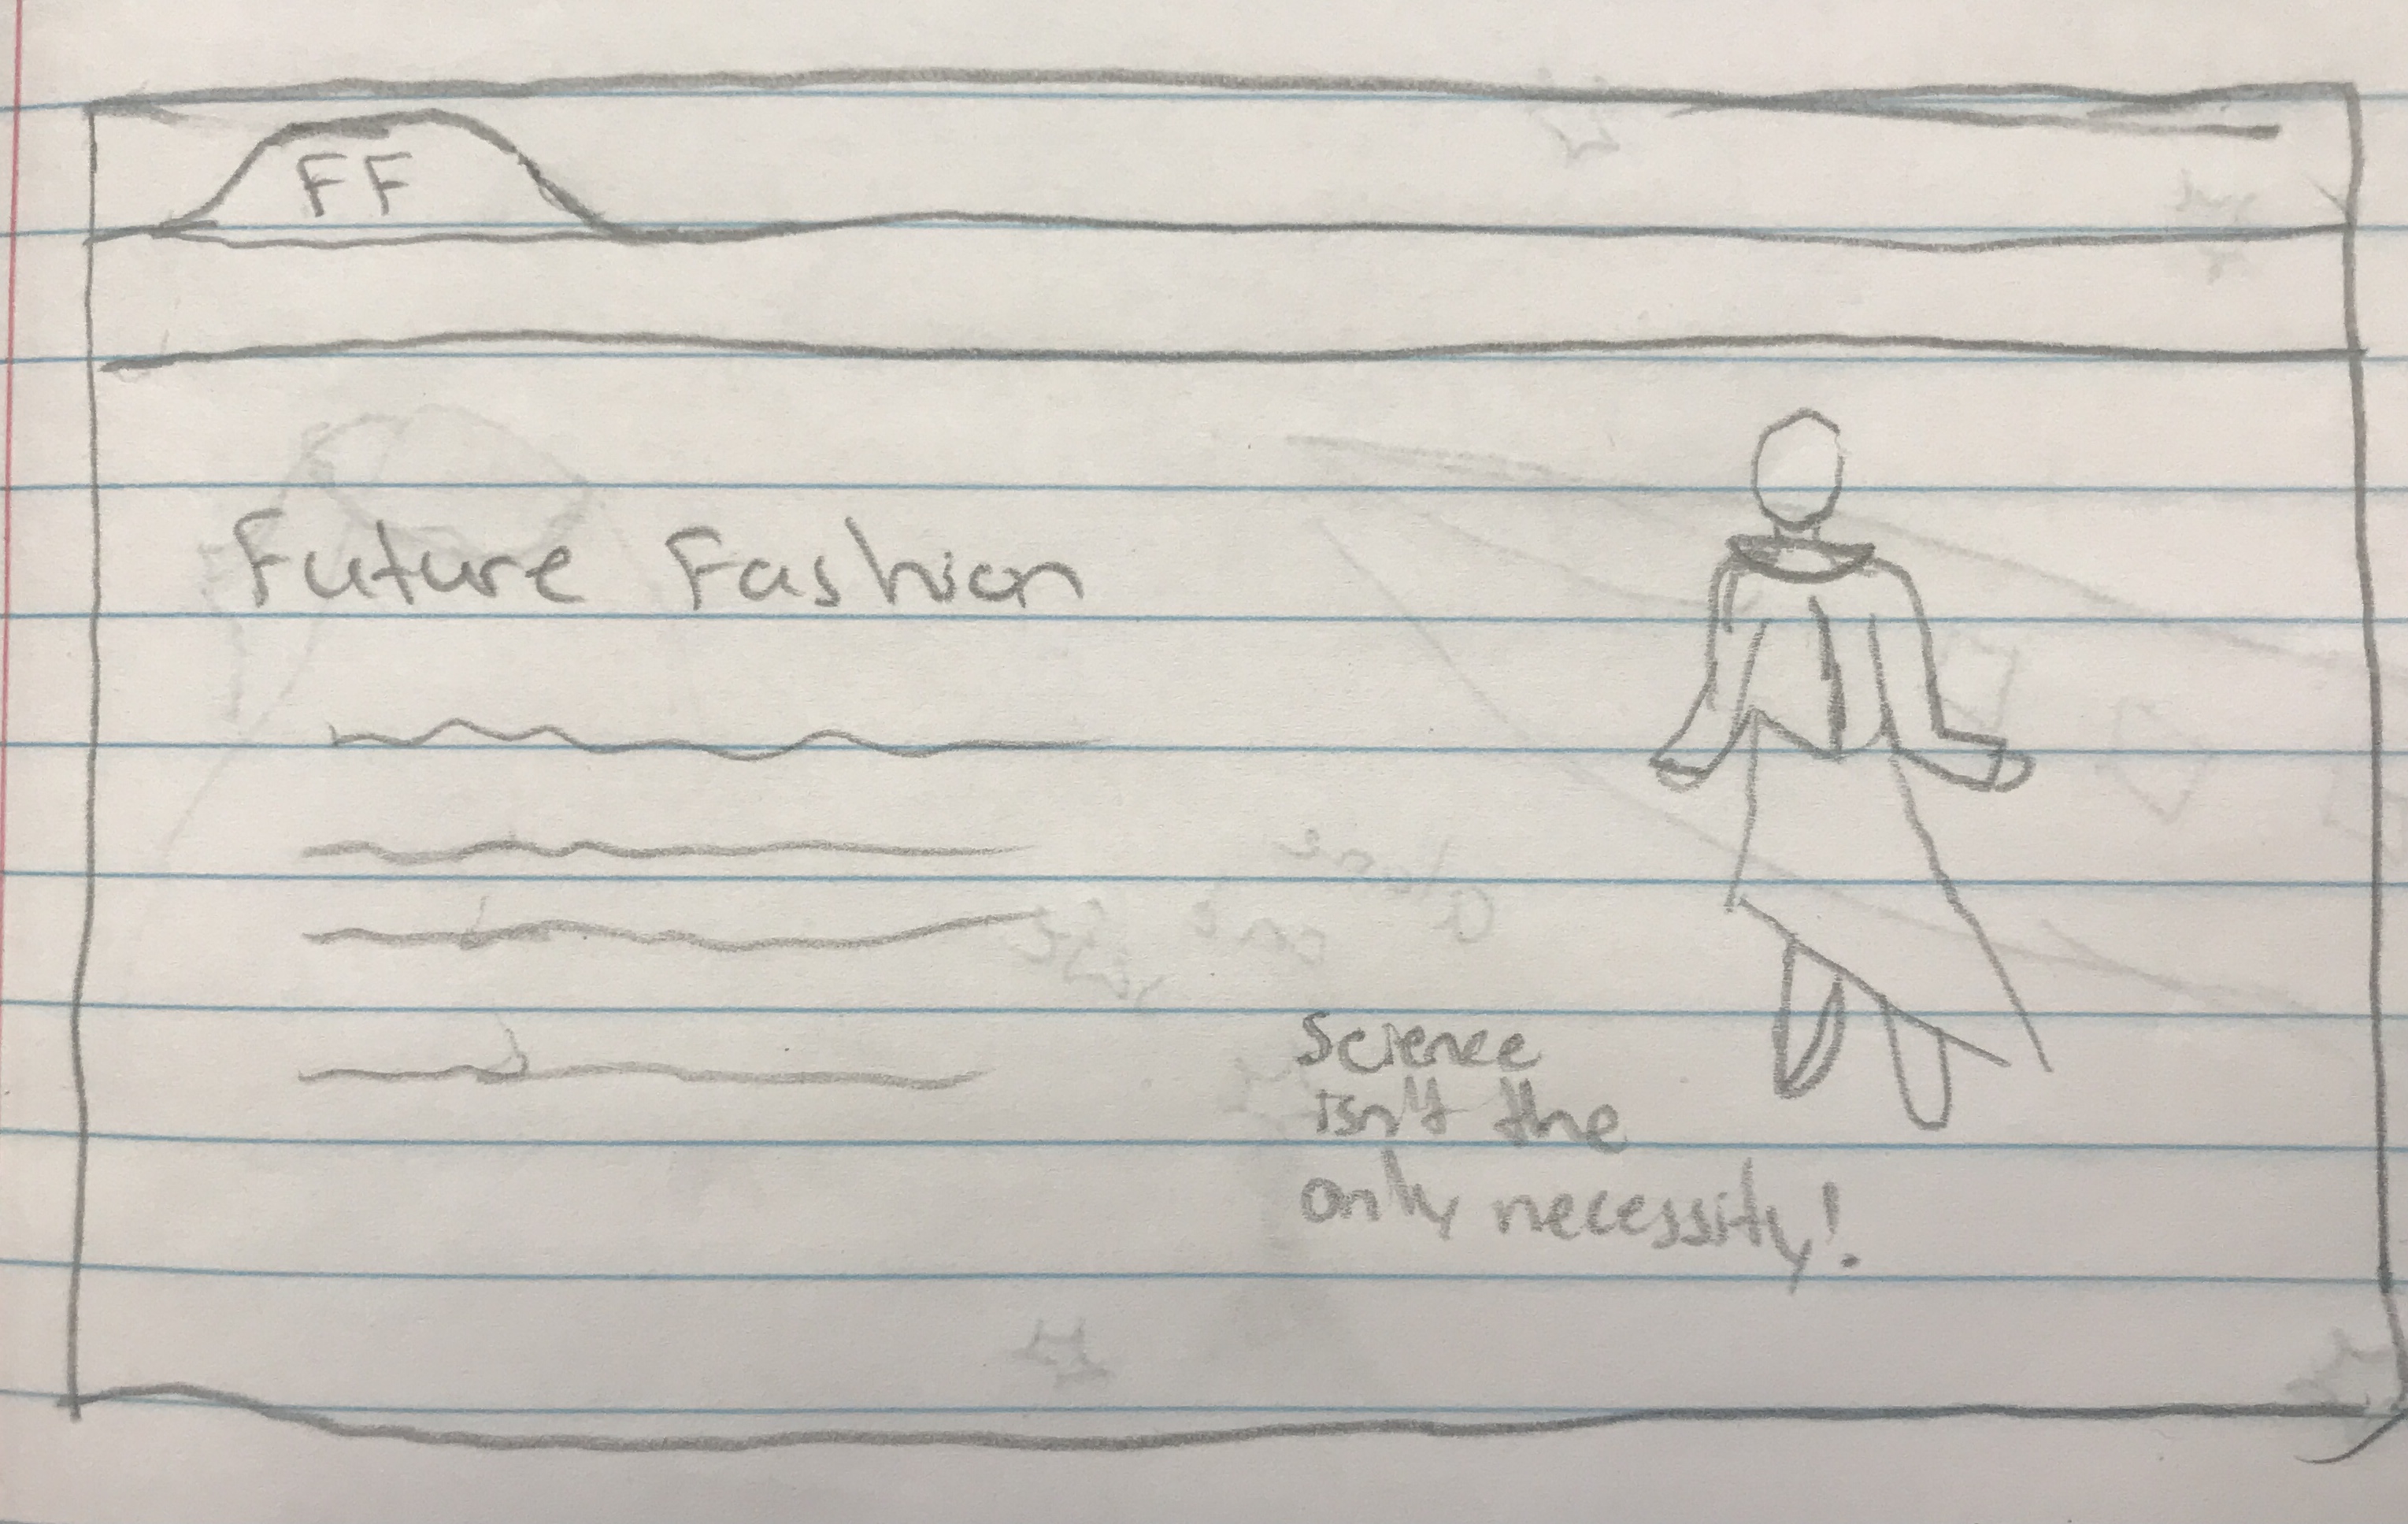 FF
Future Fashion
Science
isn't the
only necessity!